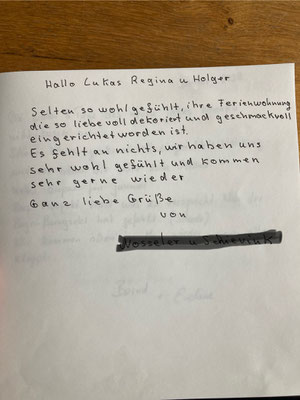 Hallo Lukas Regina u Holger
Selten so wohl gefühlt, ihre Ferienwohnung
die so liebevoll dekoriert und geschmackvoll
eingerichtet worden ist.
Es fehlt an nichts, wir haben uns
sehr wohl gefühlt und kommen
sehr gerne wieder
Ganz liebe Grüße
von